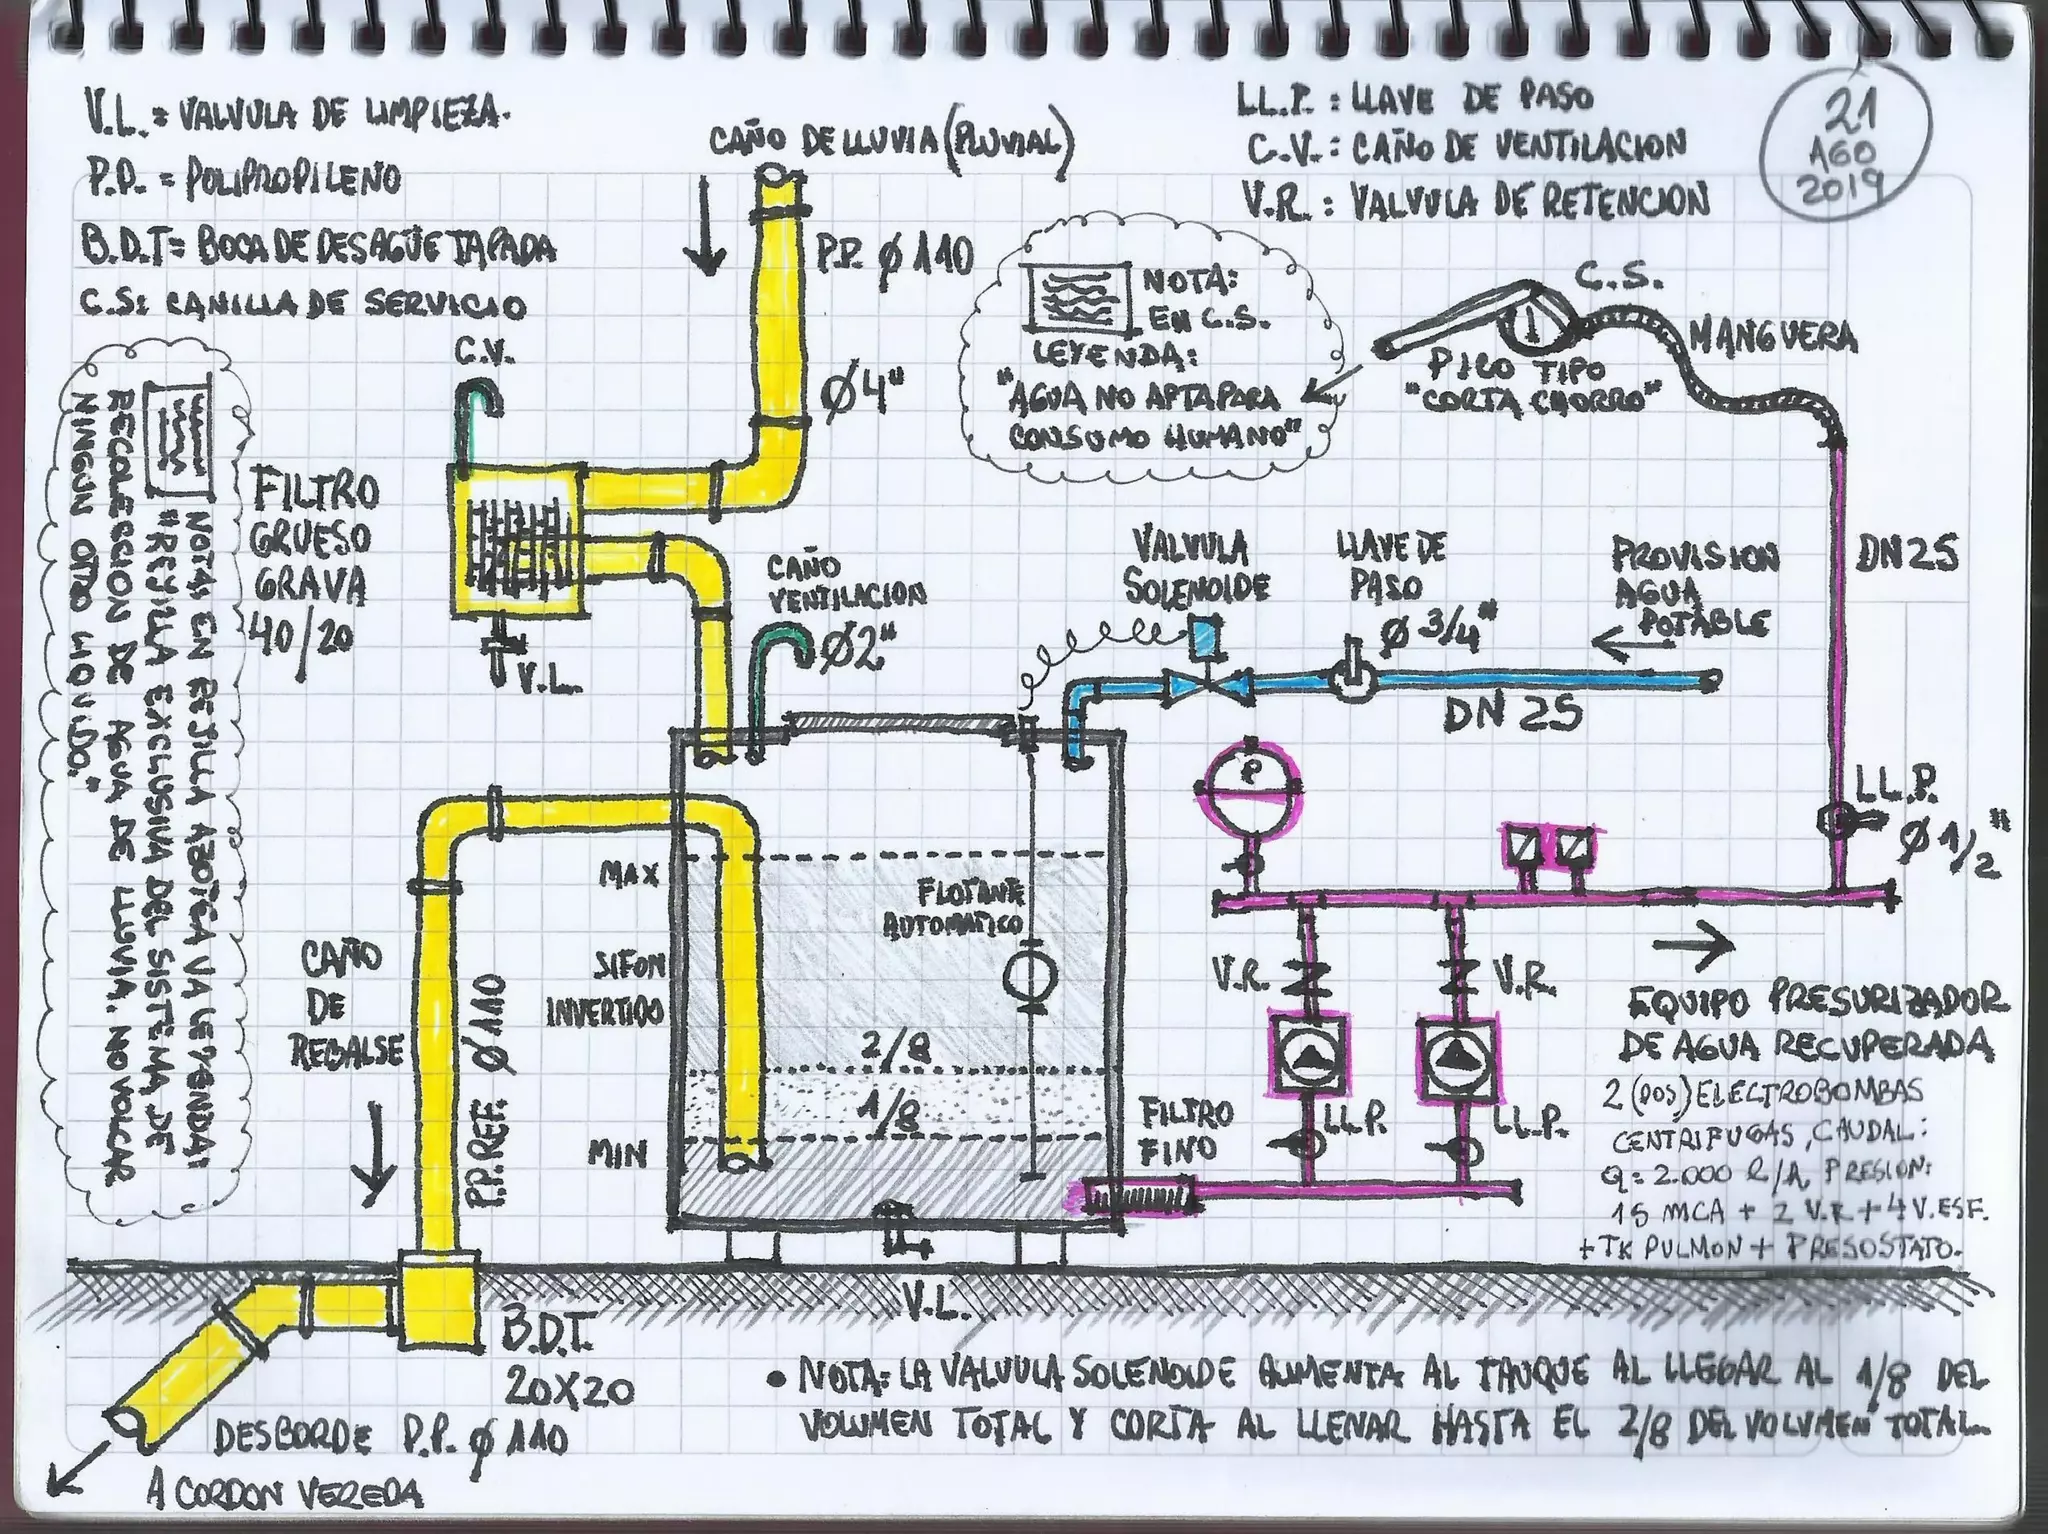 V.L. = VALVULA DE LIMPIEZA.
P.P. = POLIPROPILENO
B.D.T= BOCA DE DESAGÜE TAPADA
C.S: CANILLA DE SERVICIO
CAÑO DE LLUVIA (PLUVIAL)
LL.P. : LLAVE DE PASO
C.V. : CAÑO DE VENTILACION
V.R. : VALVULA DE RETENCION
21
AGO
2019
P.P. Ø 110
Ø4"
C.V.
NOTA:
EN C.S.
LEYENDA:
"AGUA NO APTA PARA
CONSUMO HUMANO"
C.S.
MANGUERA
PICO TIPO
"CORTA CHORRO"
NOTA: EN REJILLA AZOTEA VA LEYENDA:
"REJILLA EXCLUSIVA DEL SISTEMA DE
RECOLECCION DE AGUA DE LLUVIA. NO VOLCAR
NINGUN OTRO LIQUIDO."
FILTRO
GRUESO
GRAVA
40/20
V.L.
CAÑO
VENTILACION
Ø2"
VALVULA
SOLENOIDE
LLAVE DE
PASO
Ø 3/4"
PROVISION
AGUA
POTABLE
DN 25
DN 25
P
LL.P.
Ø 1/2"
MAX
FLOTANTE
AUTOMATICO
SIFON
INVERTIDO
2/8
1/8
MIN
CAÑO
DE
REBALSE
P.P. REF. Ø 110
V.R.
V.R.
FILTRO
FINO
LL.P.
LL.P.
EQUIPO PRESURIZADOR
DE AGUA RECUPERADA
2 (DOS) ELECTROBOMBAS
CENTRIFUGAS, CAUDAL:
Q = 2.000 l/h, PRESION:
15 MCA + 2 V.R + 4 V. ESF.
+ TK PULMON + PRESOSTATO.
V.L.
B.D.T.
20X20
DESBORDE P.P. Ø 110
A CORDON VEREDA
• NOTA: LA VALVULA SOLENOIDE AUMENTA AL TANQUE AL LLEGAR AL 1/8 DEL
VOLUMEN TOTAL Y CORTA AL LLENAR HASTA EL 2/8 DEL VOLUMEN TOTAL.